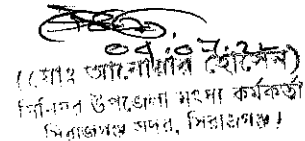 ০৪.০৭.২৫
(মোঃ আনোয়ার হোসেন)
সিনিয়র উপজেলা মৎস্য কর্মকর্তা
সিরাজগঞ্জ সদর, সিরাজগঞ্জ।